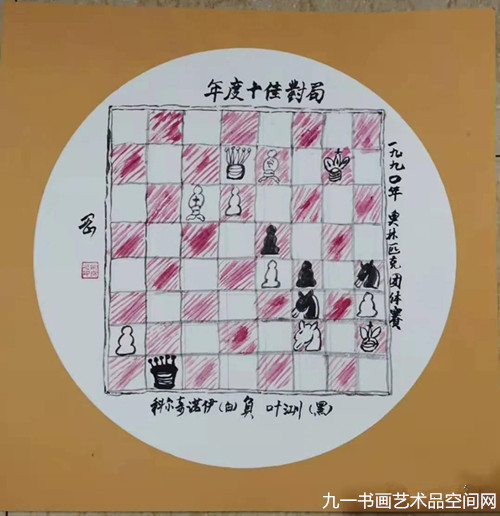 年度十佳對局
一九九〇年 奥林匹克團体賽
科尔奇诺伊(白)負 叶江川(黑)
九一书画艺术品空间网